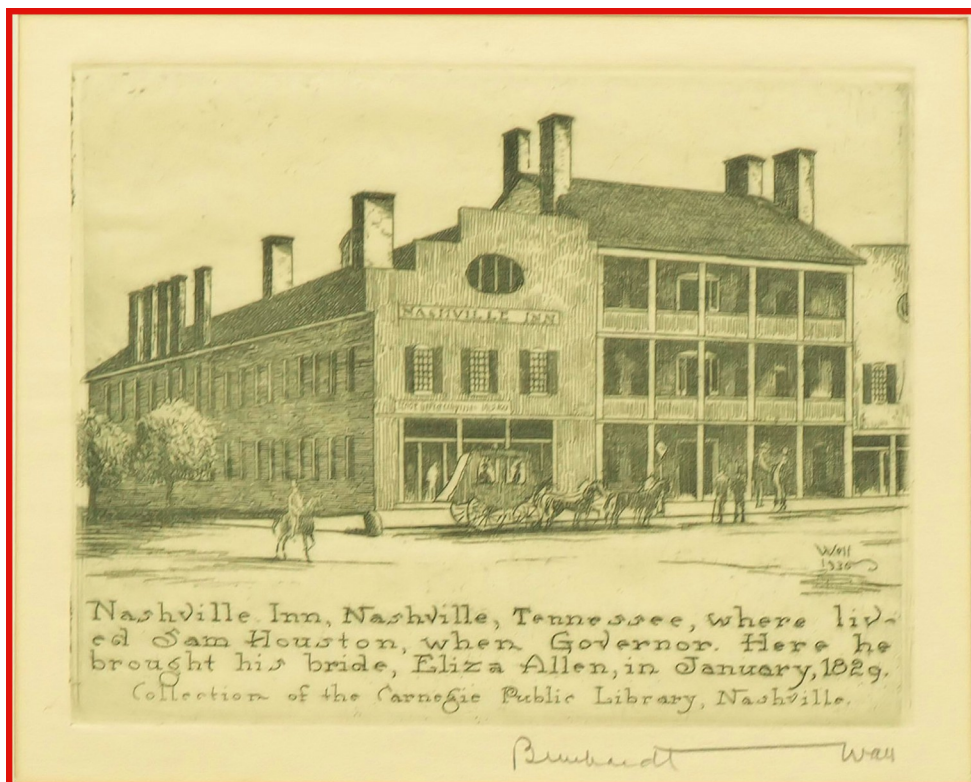 NASHVILLE INN
Wall
1930
Nashville Inn, Nashville, Tennessee, where liv-
ed Sam Houston, when Governor. Here he
brought his bride, Eliza Allen, in January, 1829.
Collection of the Carnegie Public Library, Nashville.
Bernhardt Wall